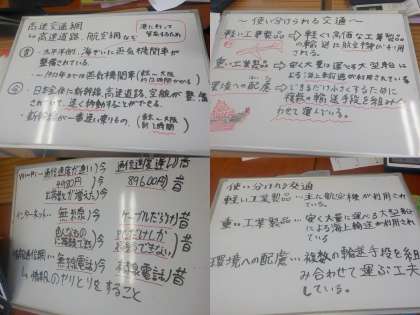 高速交通網
↳高速道路、航空網など
海にわって
昔
・太平洋側、海ぞいに蒸気機関車が
整備されている。
〜1950年までは蒸気機関車
東京〜大阪
約12時間かかる
今
・日本全体に新幹線、高速道路、空航が整備
されていて、速く移動することができる。
・新幹線が一番速い乗りもの。
東京〜大阪
約3時間
〜使い分けられる交通〜
軽い工業製品
→軽くて高価な工業製品
の輸送は航空機が利用
される。
重い工業製品
→安く大量に運べる大型船に
よる海上輸送が利用されている
環境への配慮
→できるだけ小さくするために
複数の輸送手段を組み
合わせて運んでいる。
今
通信速度遅い
昔
4980円
今
89600円
昔
インターネット…
無線
今
ケーブルだらけ
昔
いろんなもの
今
できない
昔
無線電話
今
固定電話
昔
↳情報のやりとりをすること
使い分けられる交通
軽い工業製品…主に航空機が利用されて
いる
重い工業製品…安く大量に運べる大型船に
よる海上輸送が利用されて
いる
環境への配慮…複数の輸送手段を組
み合わせて運ぶ工夫
している。